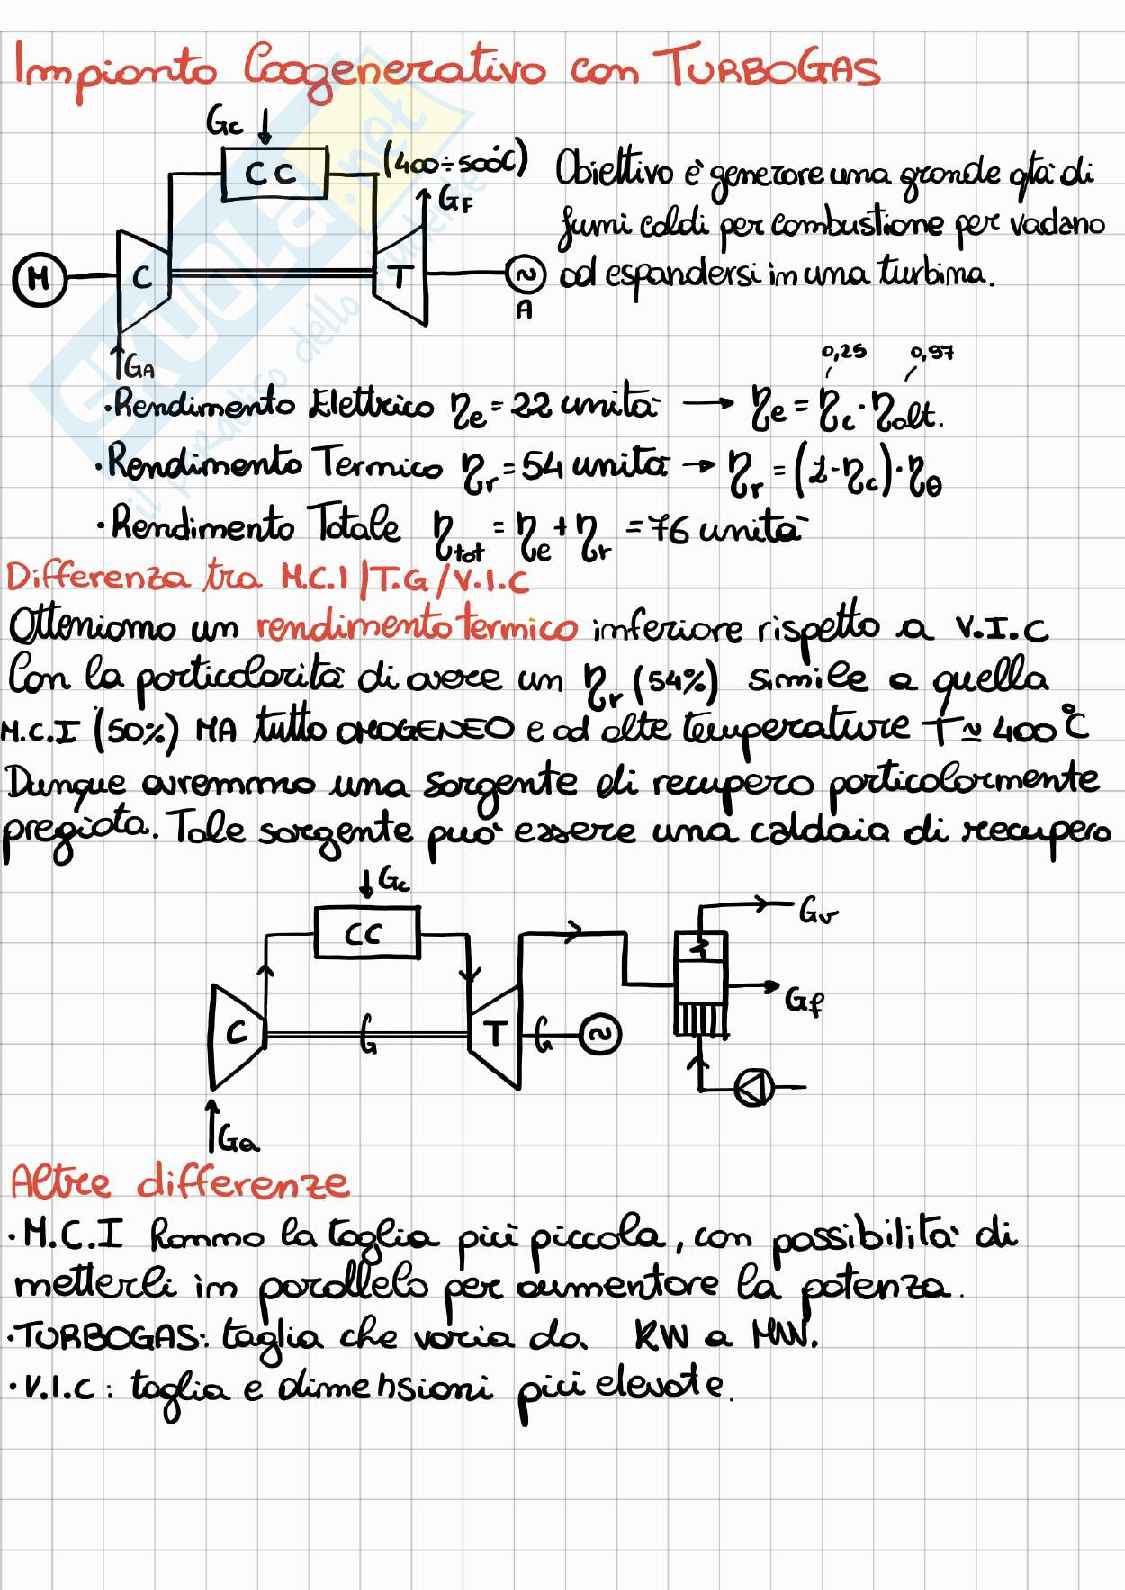 Impianto Coogenerativo con TURBOGAS
Gc
CC
(400÷500°C)
GF
M
C
T
A
GA
Obiettivo è generare una grande qtà di
fumi caldi per combustione per vadano
ad espandersi in una turbina.
0,25 0,97
·Rendimento Elettrico ηe = 22 unità → ηe = ηc · ηalt.
·Rendimento Termico ηr = 54 unità → ηr = (1-ηc)·ηθ
·Rendimento Totale ηtot = ηe + ηr = 76 unità
Differenza tra M.C.I/T.G/V.I.C
Otteniamo un rendimento termico inferiore rispetto a V.I.C
Con la particolarità di avere un ηr (54%) simile a quella
M.C.I (50%) MA tutto OMOGENEO e ad alte temperature T≃400°C
Dunque avremmo una sorgente di recupero particolarmente
pregiata. Tale sorgente può essere una caldaia di recupero
Gc
CC
Gv
Gf
C
T
Ga
Altre differenze
·M.C.I hanno la taglia più piccola, con possibilità di
metterli in parallelo per aumentare la potenza.
·TURBOGAS: taglia che varia da KW a MW.
·V.I.C: taglia e dimensioni più elevate.
SKUOLA.net
il paradiso dello studente